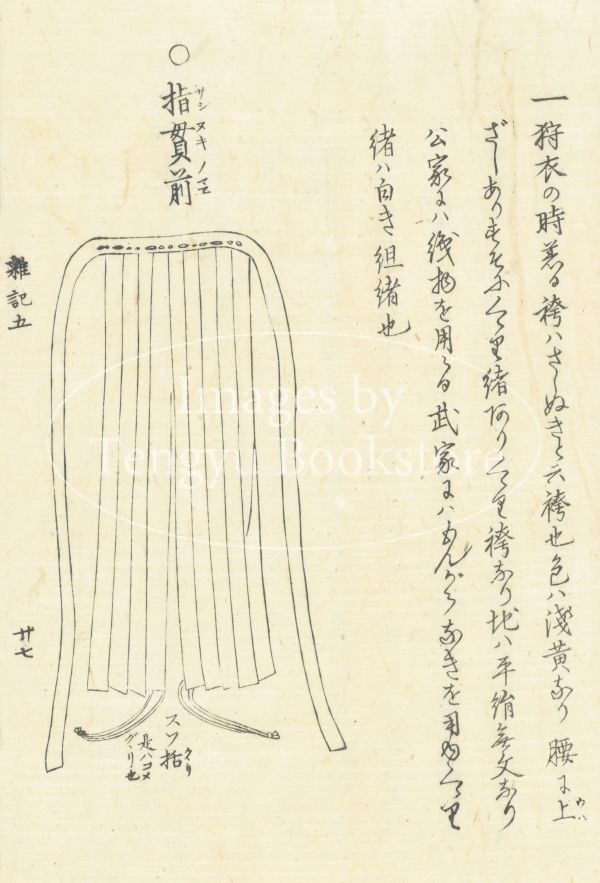 一狩衣の時着る袴ハさしぬきと云袴也色ハ浅黄なり 腰に上
ウハ
ざしありすそにくゝり緒ありくゝり袴なり地ハ平絹無文なり
公家にハ織物を用る武家にハもんがらなきを用
緒ハ白き組緒也
○指貫前
サシヌキノマエ
スソ括
クヽリ
是ハコメ
グヽリ也
雑記五
廿七
Images by
Tengyu Bookstore